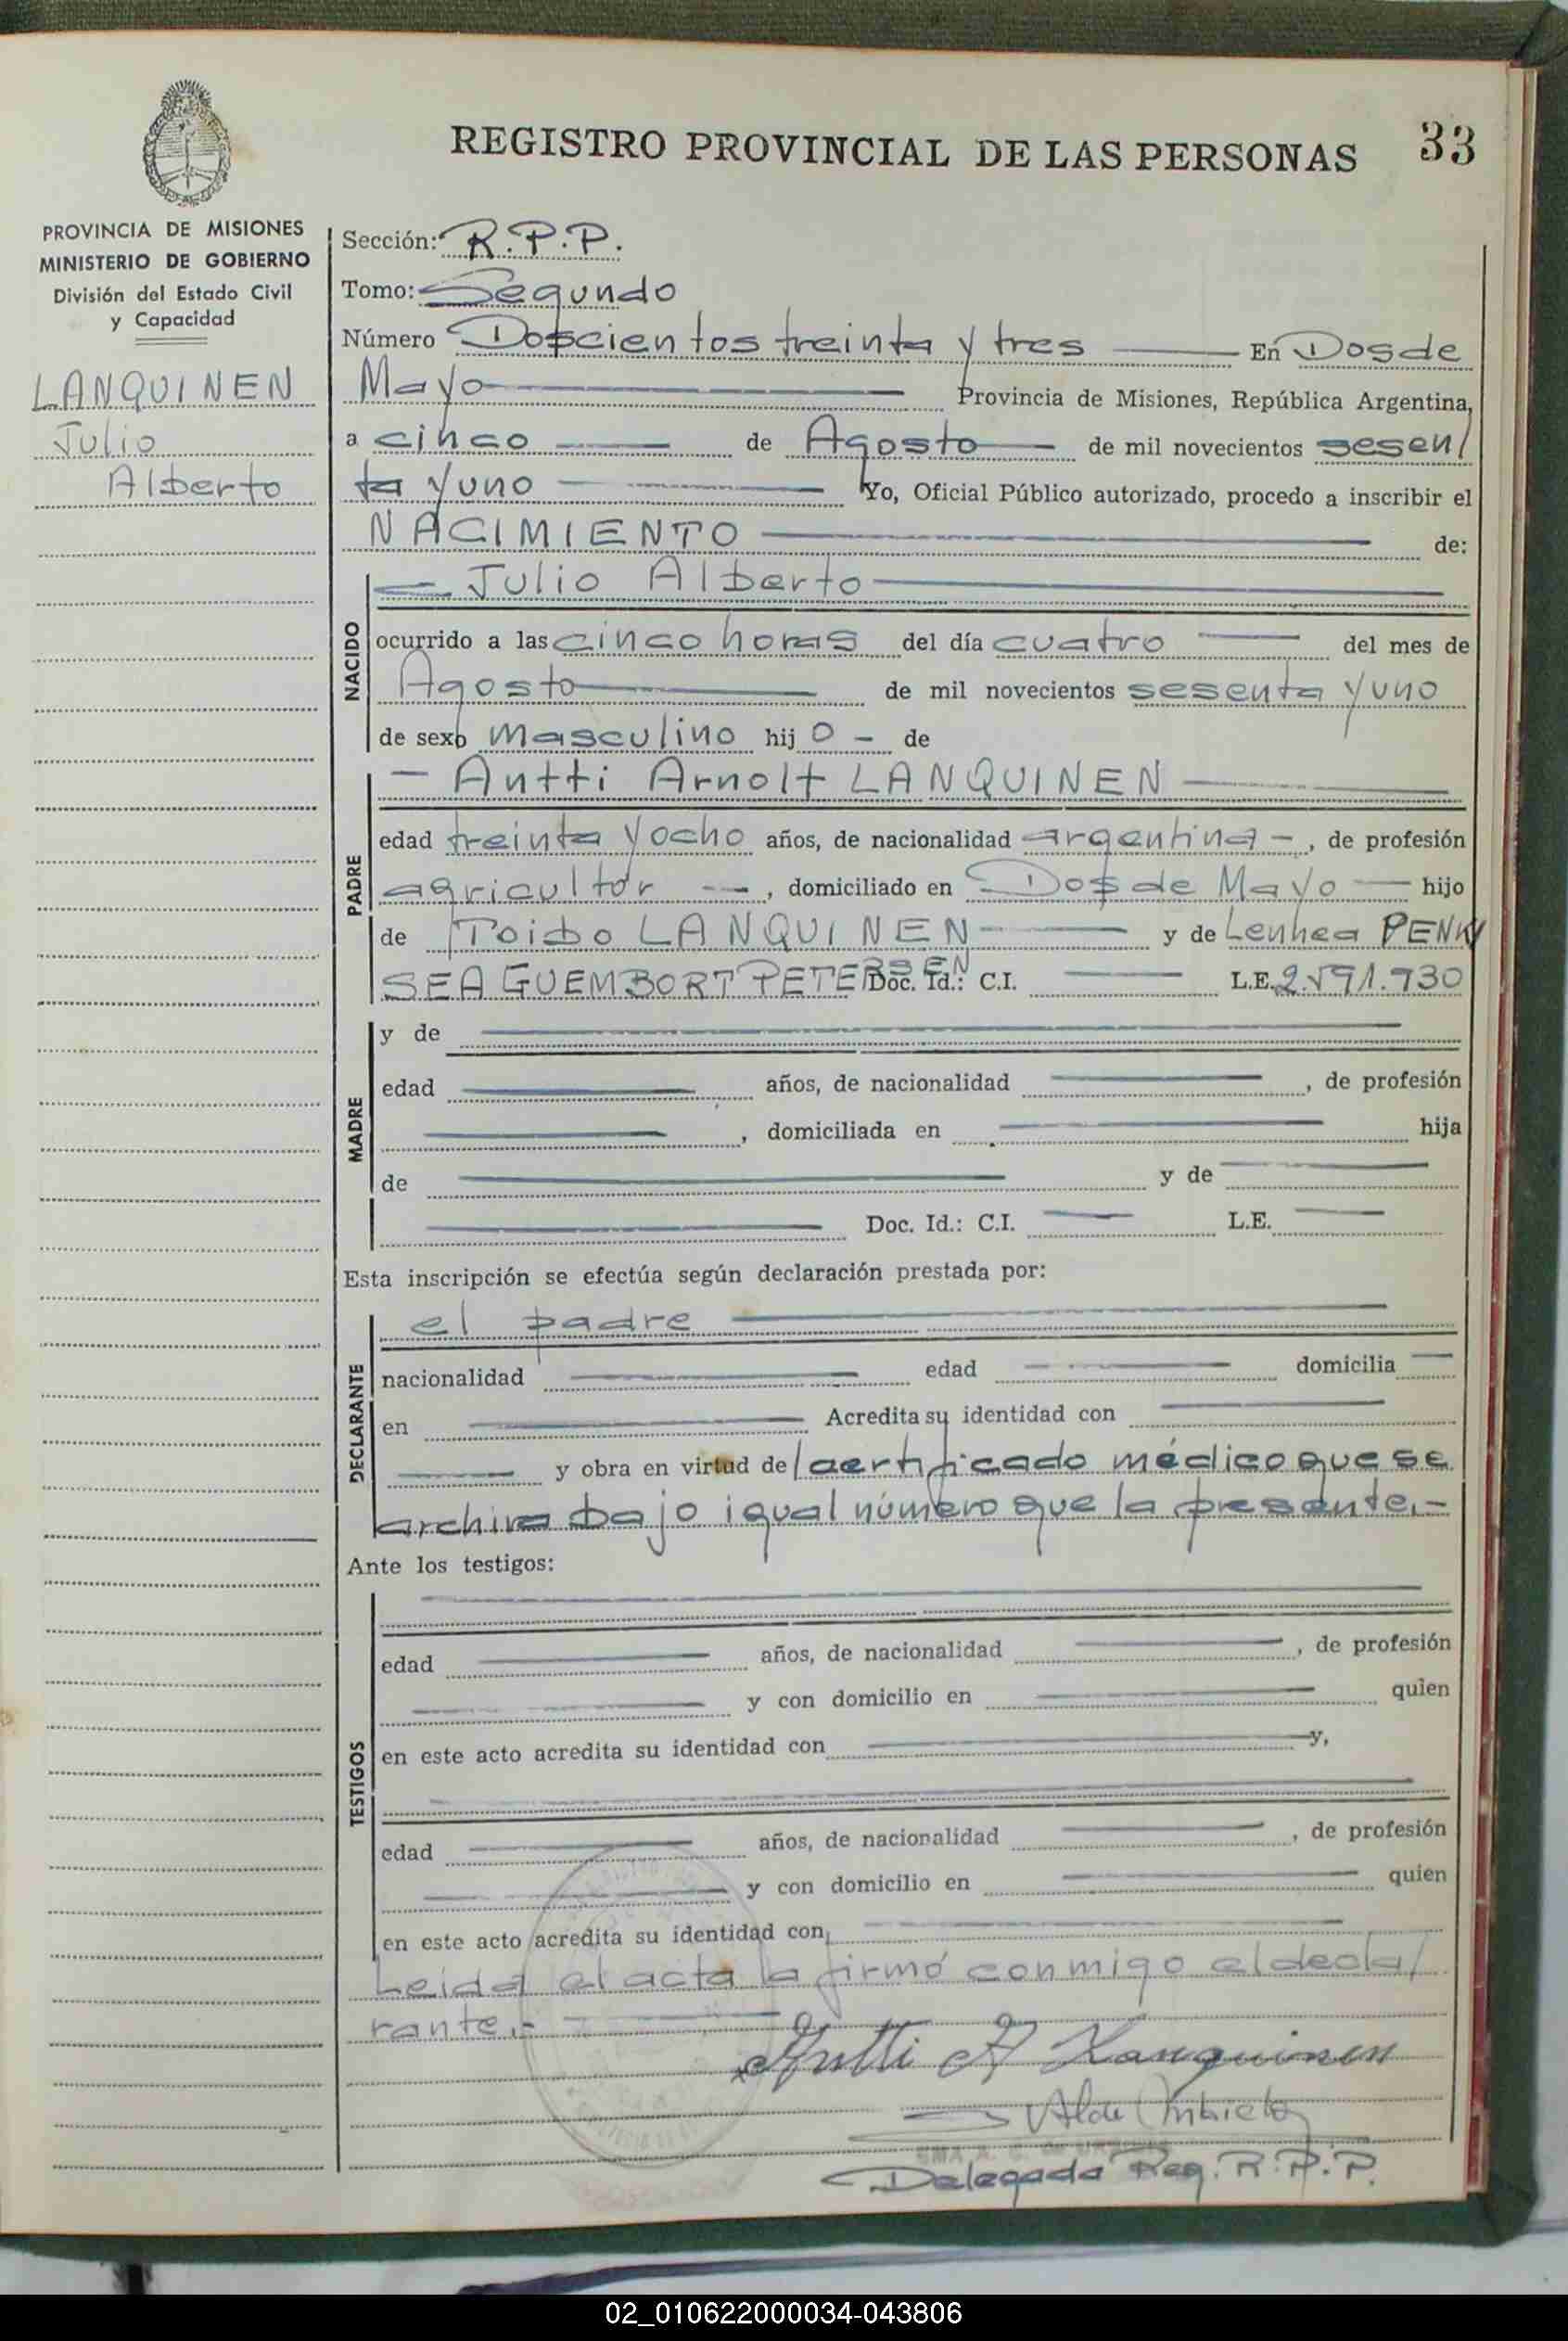 REGISTRO PROVINCIAL DE LAS PERSONAS 33
PROVINCIA DE MISIONES
MINISTERIO DE GOBIERNO
División del Estado Civil
y Capacidad
LANQUINEN
Julio
Alberto
Sección: R.P.P.
Tomo: Segundo
Número Doscientos treinta y tres En Dos de
Mayo Provincia de Misiones, República Argentina,
a cinco de Agosto de mil novecientos sesen/
ta y uno Yo, Oficial Público autorizado, procedo a inscribir el
NACIMIENTO de:
NACIDO
Julio Alberto
ocurrido a las cinco horas del día cuatro del mes de
Agosto de mil novecientos sesenta y uno
de sexo masculino hij o - de
PADRE
- Antti Arnolt LANQUINEN
edad treinta y ocho años, de nacionalidad argentina -, de profesión
agricultor, domiciliado en Dos de Mayo hijo
de Toibo LANQUINEN y de Lenhea PENK
SEA GUEMBORT PETERSEN Doc. Id.: C.I. L.E. 2.591.930
MADRE
y de
edad años, de nacionalidad , de profesión
, domiciliada en hija
de y de
Doc. Id.: C.I. L.E.
Esta inscripción se efectúa según declaración prestada por:
DECLARANTE
el padre
nacionalidad edad domicilia
en Acredita su identidad con
y obra en virtud de/ certificado médico que se
archiva bajo igual número que la presente.-
Ante los testigos:
TESTIGOS
edad años, de nacionalidad , de profesión
y con domicilio en quien
en este acto acredita su identidad con y,
edad años, de nacionalidad , de profesión
y con domicilio en quien
en este acto acredita su identidad con
Leida el acta la firmó conmigo el decla/
rante.-
Antti A Lanquinen
Delegada Reg. R.P.P.
02_010622000034-043806